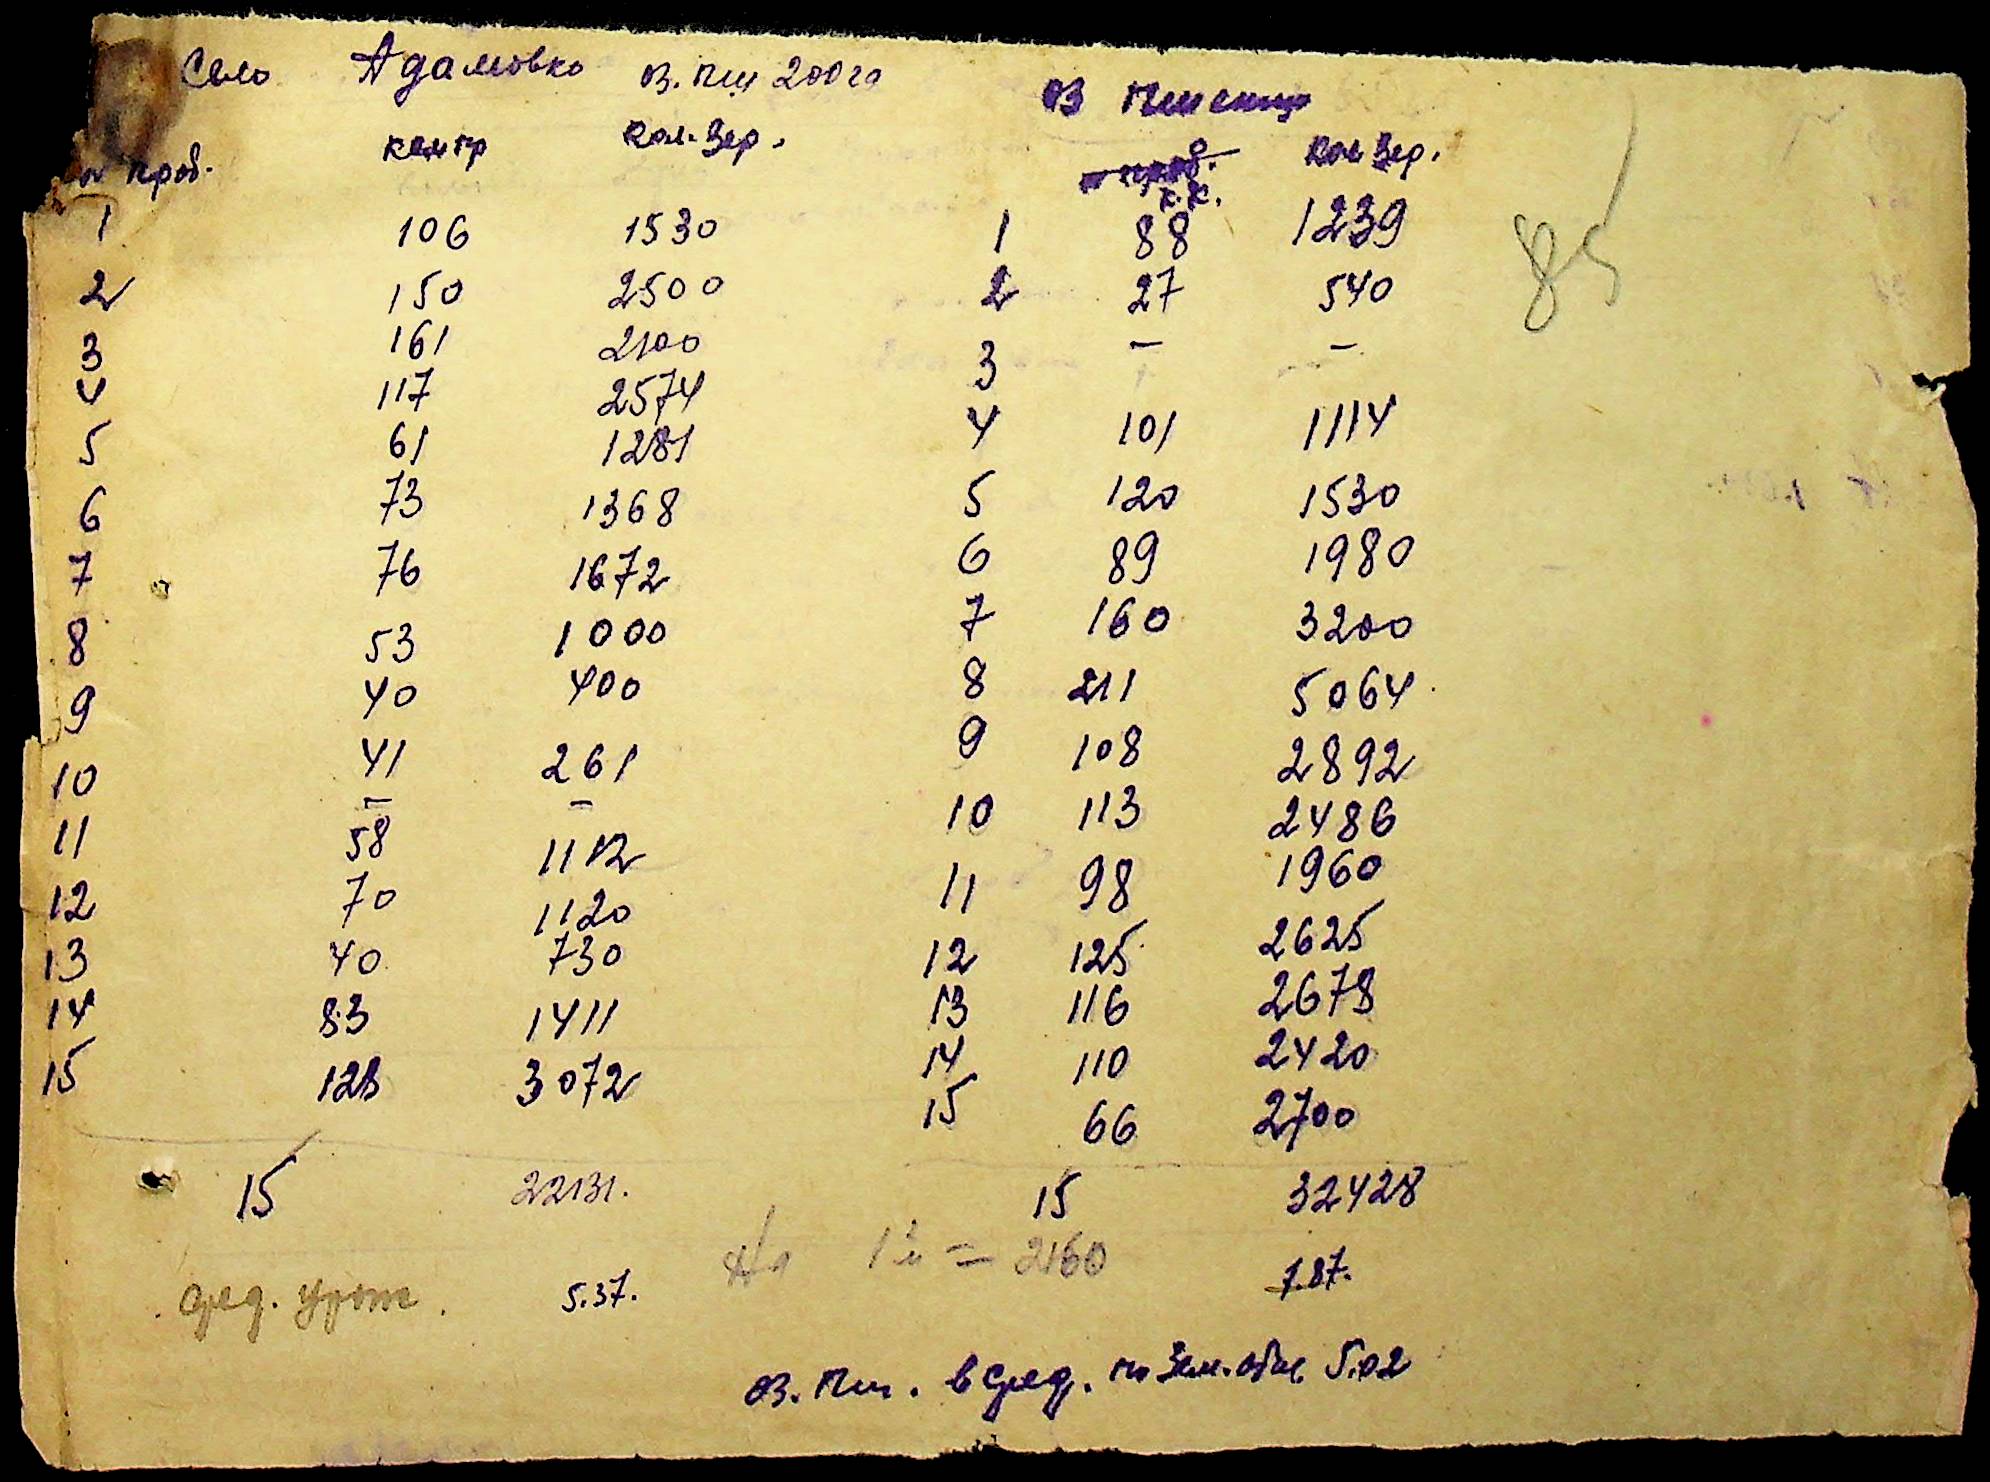 Село Адамовко оз. пш 200 га
оз Пшениц
проб. кол кол. зер.
проб. к.к. кол зер.
1 106 1530
2 150 2500
3 161 2100
4 117 2574
5 61 1281
6 73 1368
7 76 1672
8 53 1000
9 40 400
10 41 261
– –
11 58 1112
12 70 1120
13 40 730
14 83 1411
15 128 3072
15 22131.
сред. урож. 5.37.
1 88 1239
2 27 540
3 – –
4 101 1114
5 120 1530
6 89 1980
7 160 3200
8 211 5064
9 108 2892
10 113 2486
11 98 1960
12 125 2625
13 116 2678
14 110 2420
15 66 2700
15 32428
На 1 м = 2160
7.87.
оз. пш. в сред. по Зем. общ. 5.02
85